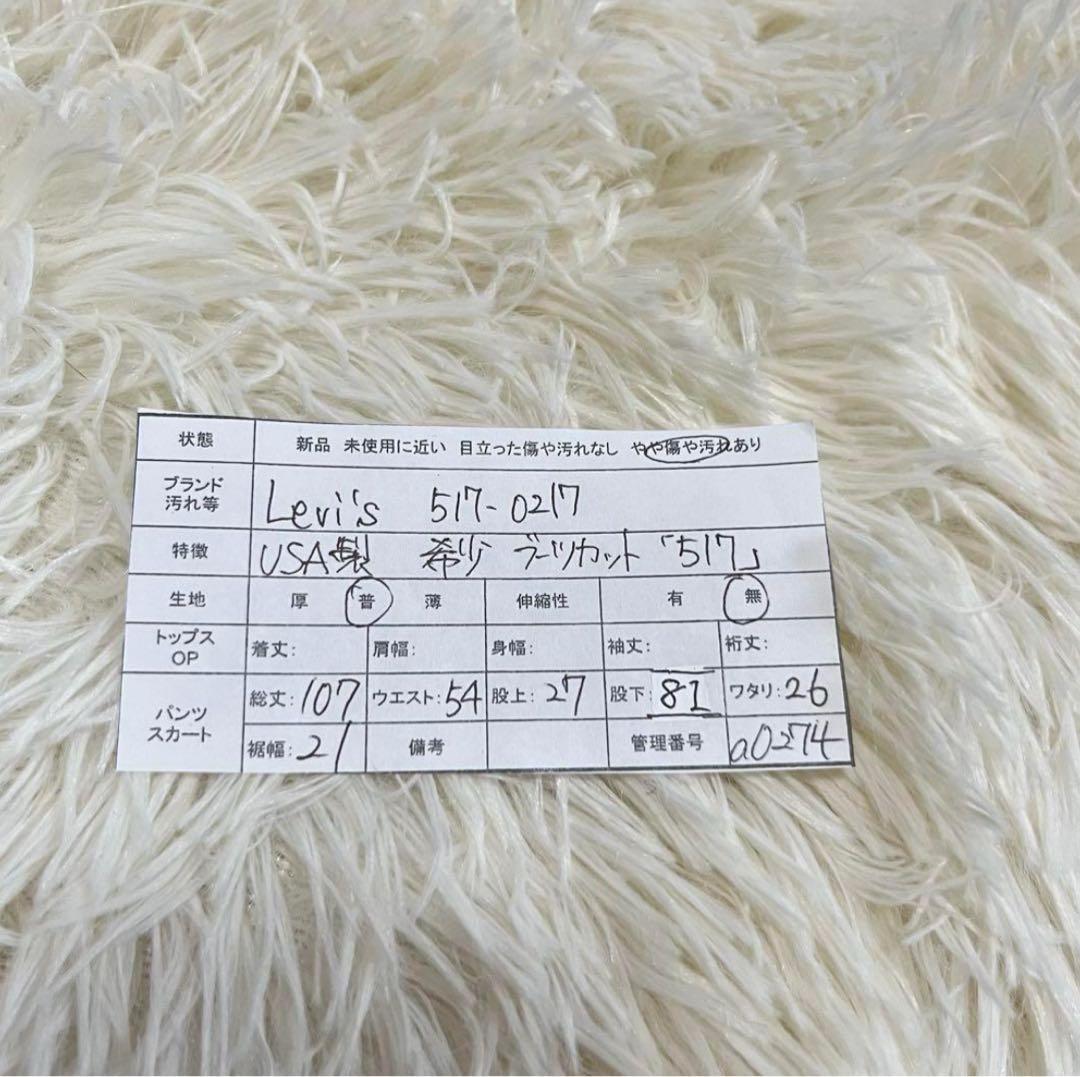 状態 新品 未使用に近い 目立った傷や汚れなし やや傷や汚れあり
ブランド
汚れ等 Levi's 517-0217
特徴 USA製 希少 ブーツカット「517」
生地 厚 普 薄 伸縮性 有 無
トップス
OP 着丈: 肩幅: 身幅: 袖丈: 裄丈:
パンツ
スカート 総丈:107 ウエスト:54 股上:27 股下:81 ワタリ:26
裾幅:21 備考 管理番号 a0274